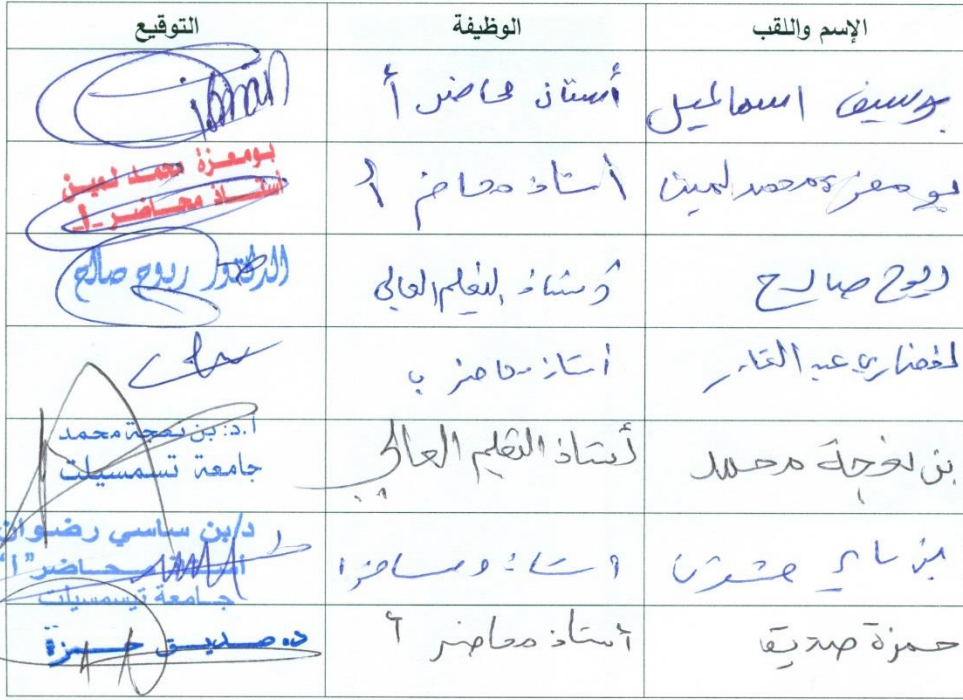 الإسم واللقب الوظيفة التوقيع
بوسيف اسماعيل أستاذ محاضر أ
بومعزة محمد لمين أستاذ محاضر أ بومعزة محمد لمين
أستاذ محاضر-أ-
ربوح صالح أستاذ التعليم العالي الدكتور ربوح صالح
لخضاري عبد القادر أستاذ محاضر ب
بن نعجة محمد أستاذ التعليم العالي أ.د: بن نعجة محمد
جامعة تسمسيلت
د/بن ساسي رضوان
أستاذ محاضر "أ"
جامعة تيسمسيلت
حمزة صديق أستاذ محاضر أ د. صديق حمزة